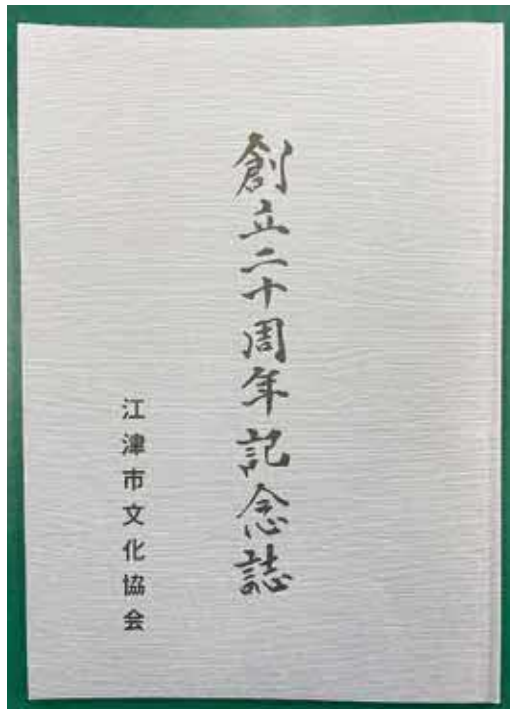 創立二十周年記念誌
江津市文化協会